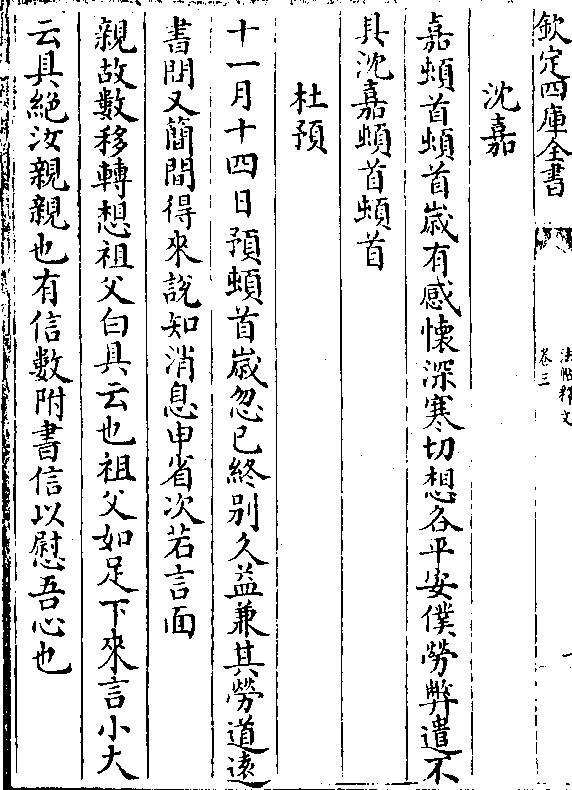 欽定四庫全書
法帖釋文
卷三
沈嘉
嘉頓首頓首歳有感懐深寒切想各平安僕勞弊遣不
具沈嘉頓首頓首
杜預
十一月十四日預頓首歳忽已終别久益兼其勞道遠
書問又簡間得來說知消息申省次若言面
親故數移轉想祖父白具云也祖父如足下來言小大
云具絶汝親親也有信數附書信以慰吾心也